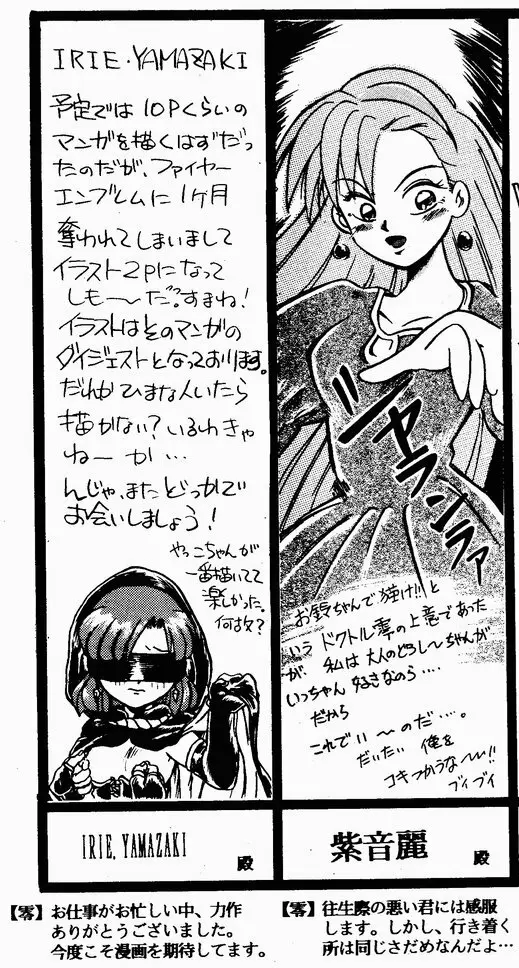 IRIE・YAMAZAKI
予定では10Pくらいの
マンガを描くはずだっ
たのだが、ファイヤー
エンブレムに1ヶ月
奪われてしまいまして
イラスト2Pになって
しも〜〜だ?すまね!
イラストはそのマンガの
ダイジェストとなっております。
だれかひまな人いたら
描かない?いるわきゃ
ねーか…
んじゃ、またどっかで
お会いしましょう!
やっこちゃんが
一番描いてて
楽しかった。
何故?
IRIE, YAMAZAKI
殿
【零】お仕事がお忙しい中、力作
ありがとうございました。
今度こそ漫画を期待してます。
ジャランラァ
お鈴ちゃんで強け!!と
いうドクトル零の上意であった
が、私は大人のどろし〜ちゃんが
いっちゃん好きなのら….
だから
これでい〜のだ…。
だいたい俺を
コキつかうな〜!!
ブイブイ
紫音麗
殿
【零】往生際の悪い君には感服
します。しかし、行き着く
所は同じさだめなんだよ…